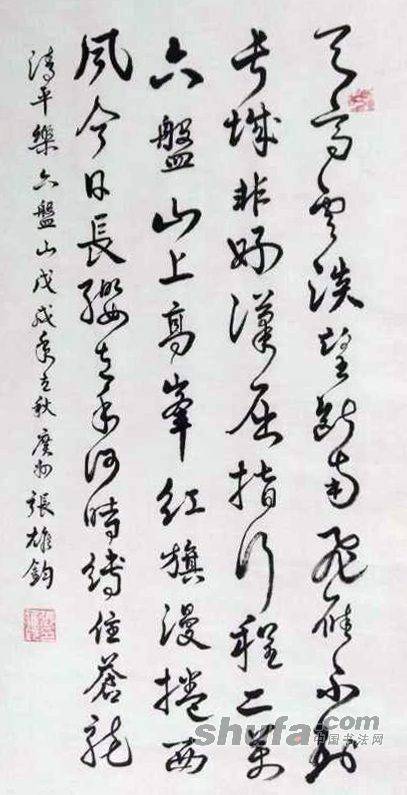 天高雲淡望斷南飛雁不到
長城非好漢屈指行程二萬
六盤山上高峯紅旗漫捲西
風今日長纓在手何時縛住蒼龍
清平樂六盤山戊戌年立秋廣州張雄鈞
shufa.com
中国书法网